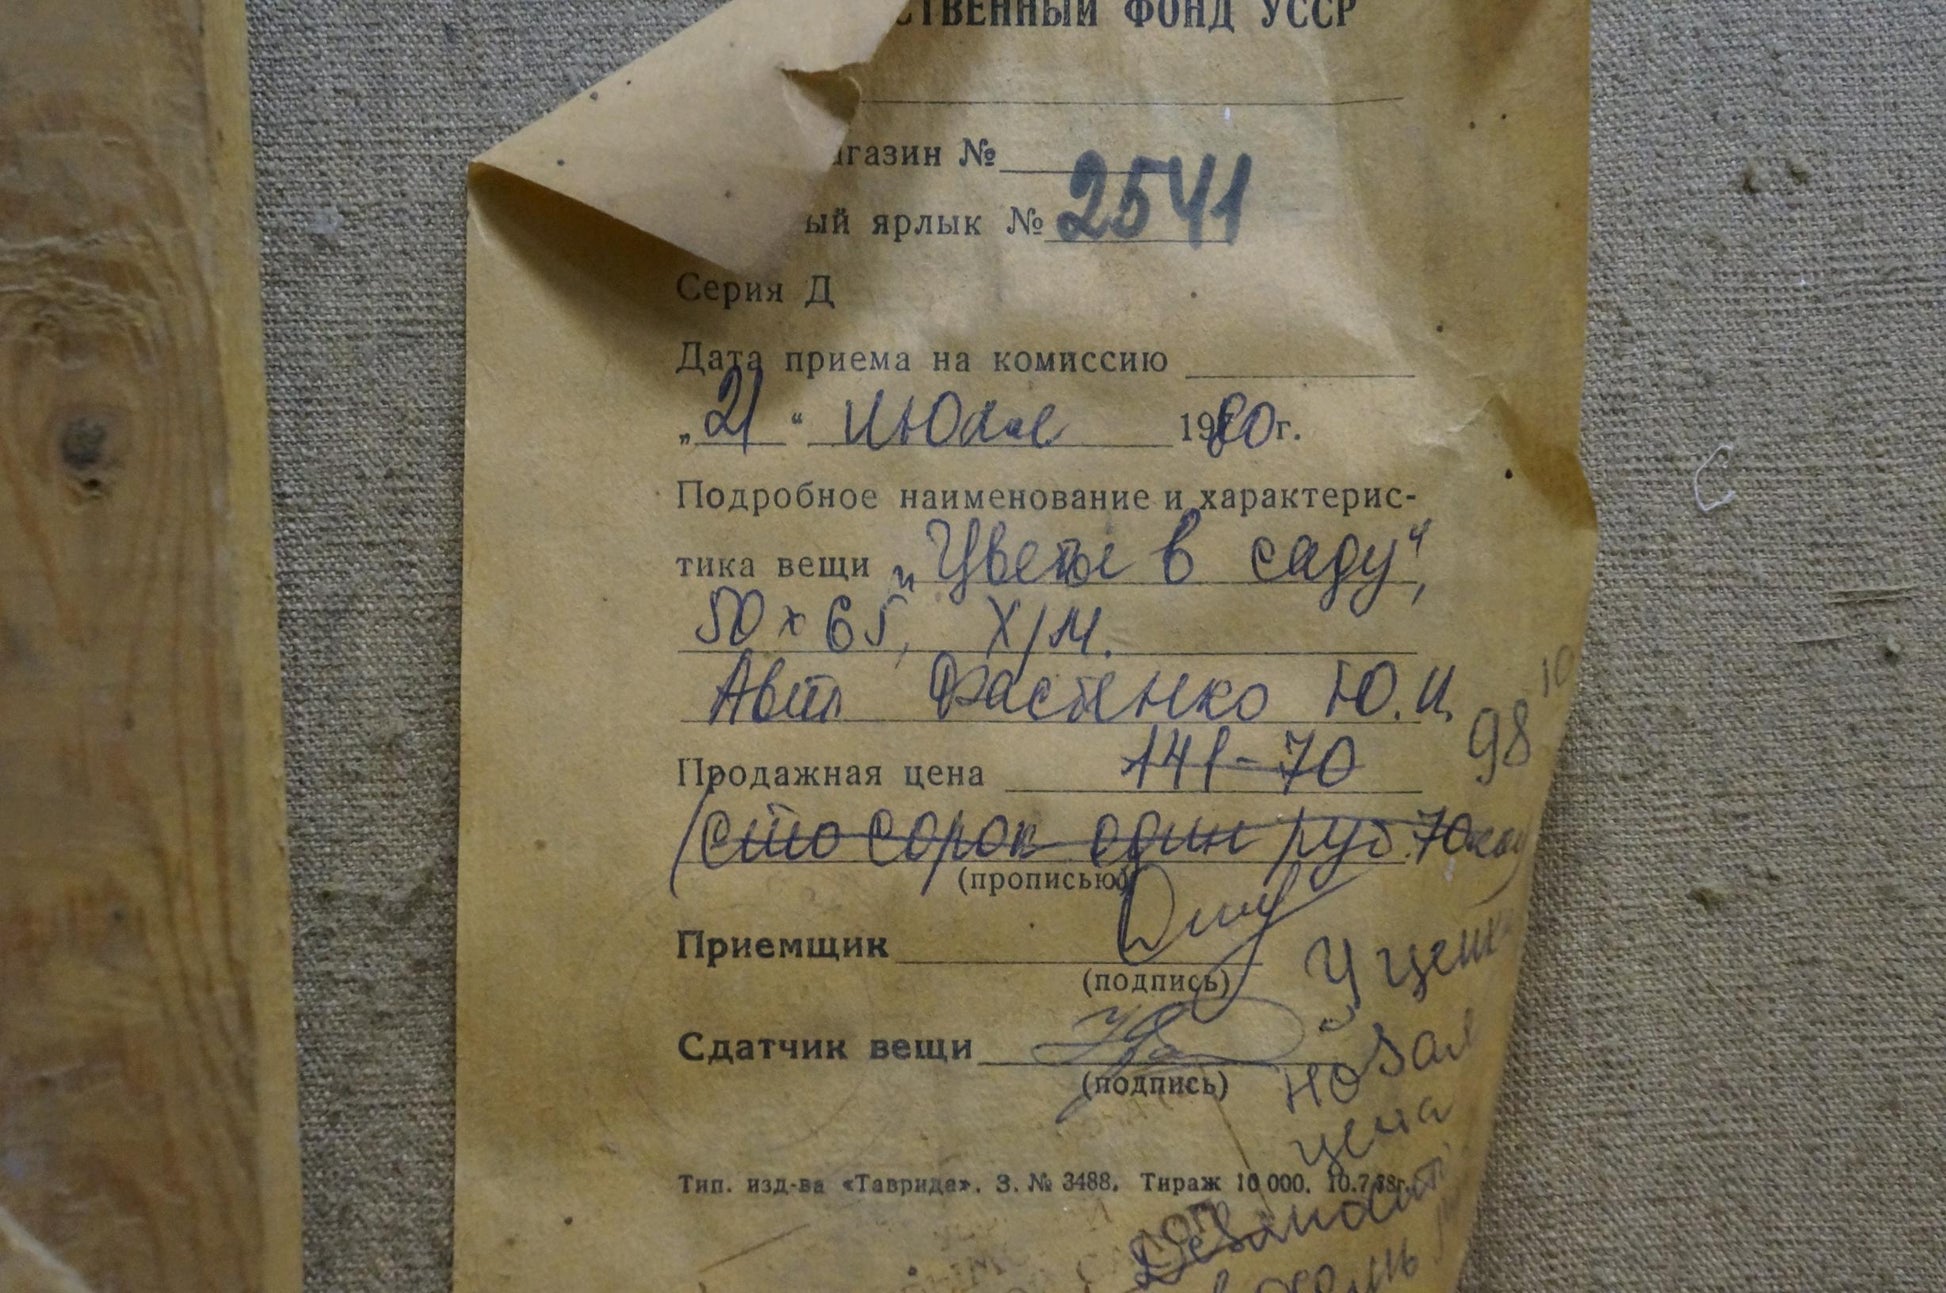 СТВЕННЫЙ ФОНД УССР
агазин №
ый ярлык № 2541
Серия Д
Дата приема на комиссию
„21“ июля 1980г.
Подробное наименование и характерис-
тика вещи „Цветы в саду“,
50х65, х/м.
Авт. Ю.И.
10
Продажная цена 141-70 98
(сто сорок один руб. 70 коп
(прописью)
Приемщик
(подпись)
Уценка
Сдатчик вещи
(подпись)
новая
цена
Тип. изд-ва «Таврида». З. № 3488. Тираж 10 000. 10.7.78г.
Девяносто
восемь